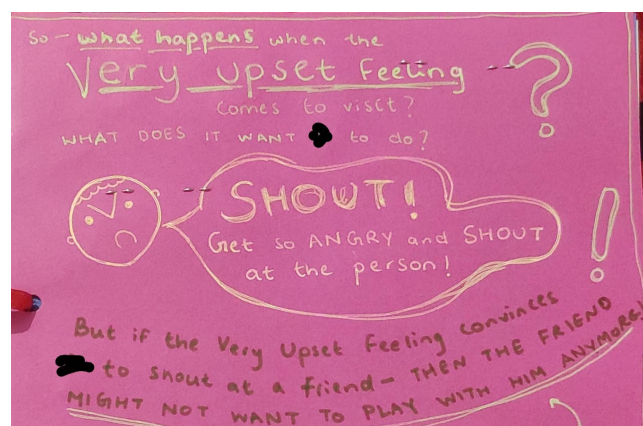 So - what happens when the
Very upset Feeling -- ?
comes to visit?
WHAT DOES IT WANT to do?
SHOUT!
Get so ANGRY and SHOUT
at the person!
!
But if the Very Upset Feeling convinces
to shout at a friend - THEN THE FRIEND
MIGHT NOT WANT TO PLAY WITH HIM ANYMORE!